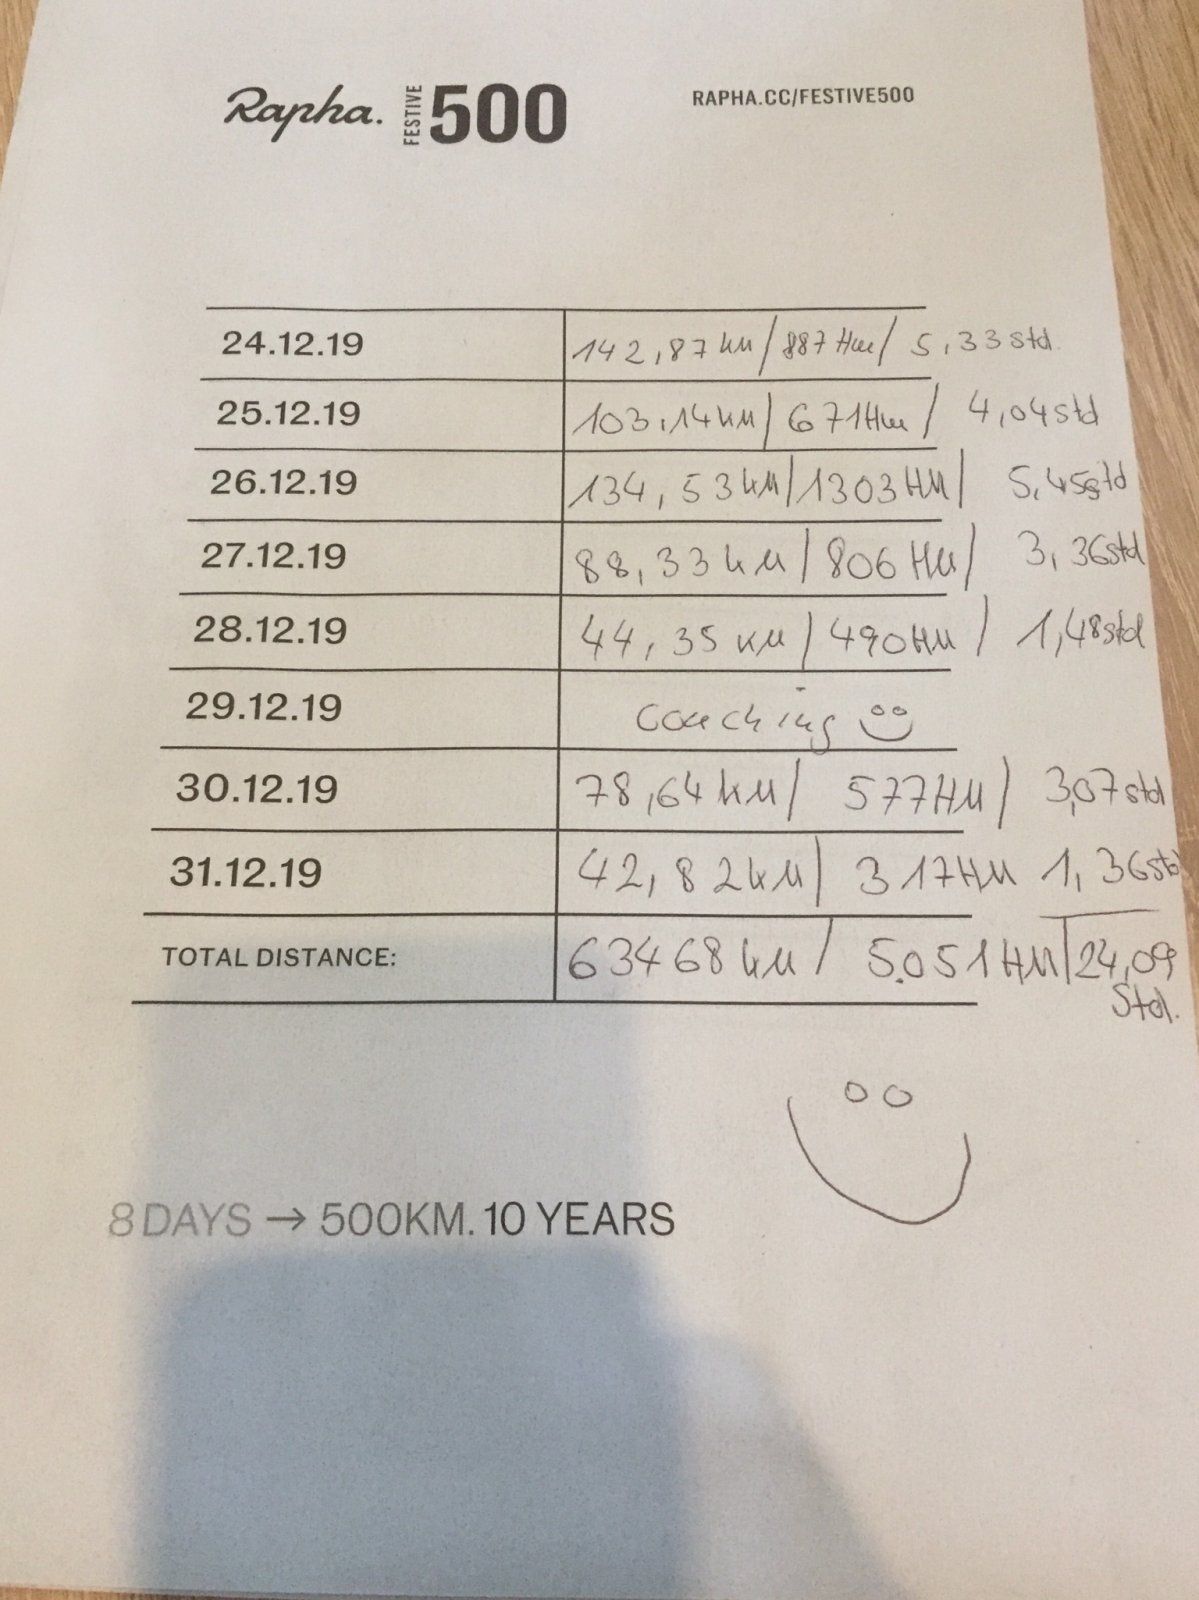 Rapha. FESTIVE 500 RAPHA.CC/FESTIVE500
24.12.19 142,87 km / 887 Hm / 5,33 Std.
25.12.19 103,14 km / 671 Hm / 4,04 Std
26.12.19 134,53 kM / 1303 HM / 5,45 Std
27.12.19 88,33 kM / 806 HM / 3,36 Std
28.12.19 44,35 KM / 490 HM / 1,48 Std
29.12.19 Coaching
30.12.19 78,64 kM / 577 HM / 3,07 Std
31.12.19 42,82 kM / 317 HM 1,36 Std
TOTAL DISTANCE: 63468 kM / 5.051 HM / 24,09
Std.
8 DAYS → 500KM. 10 YEARS